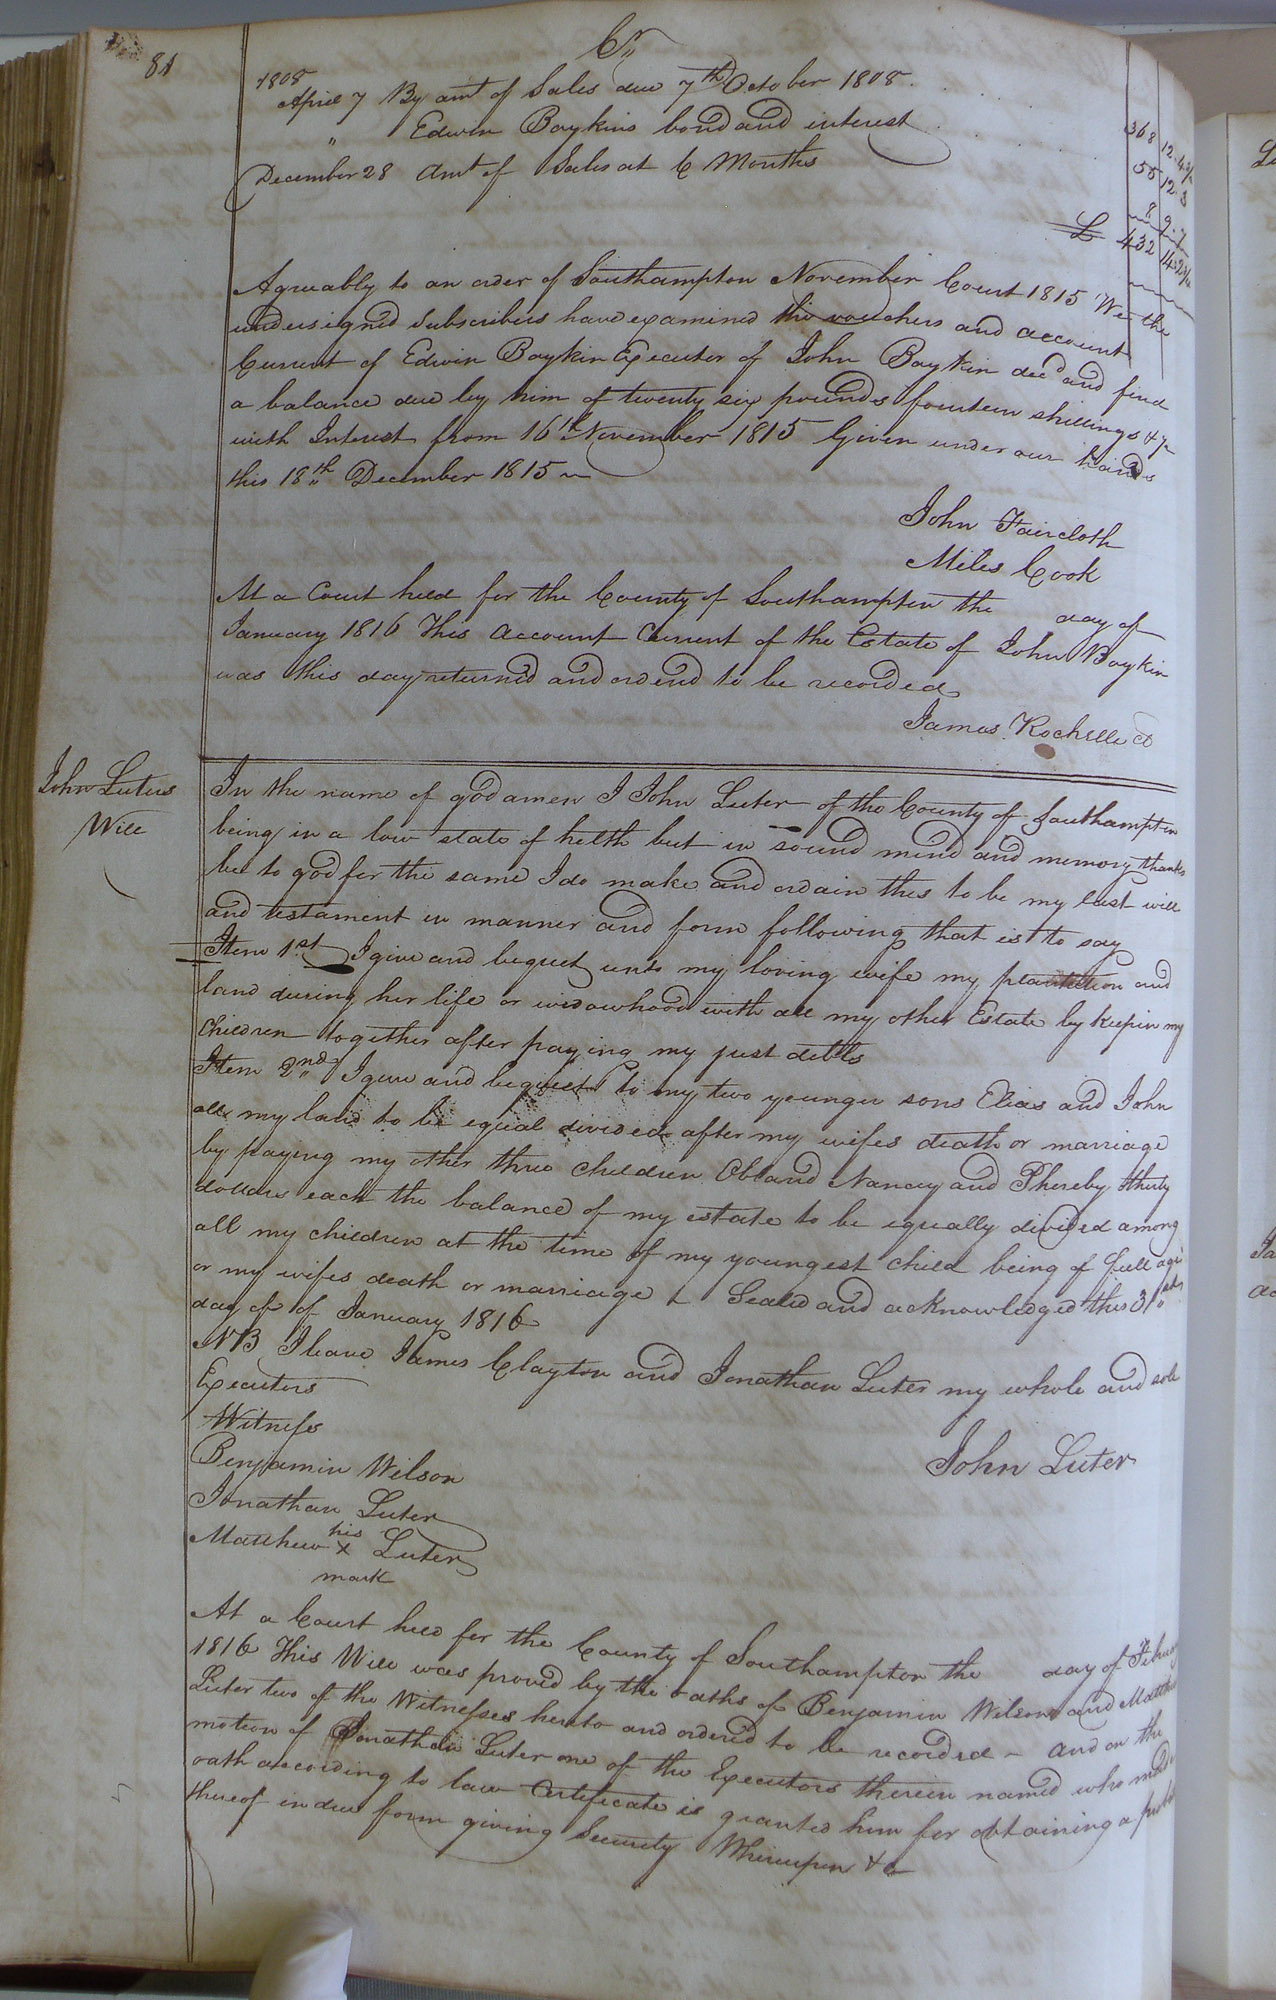 81
Cr
1808
April 7 By amt of Sales due 7th October 1808. 368 12.4 3/4
" Edwin Boykins bond and interest 55 12.3
December 28 Amt of Sales at 6 Months 8 9.7
£ 432 14.2 3/4
Agreeably to an order of Southampton November Court 1815 We the
undersigned subscribers have examined the vouchers and account
Current of Edwin Boykin Executor of John Boykin decd and find
a balance due by him of twenty six pounds fourteen shillings &
with Interest from 16th November 1815 Given under our hands
this 18th December 1815
John Faircloth
Miles Cook
At a Court held for the County of Southampton the day of
January 1816 This Account Current of the Estate of John Boykin
was this day returned and ordend to be recorded
James Rochelle
John Luters
Will
In the name of god amen I John Luter of the County of Southampton
being in a low state of helth but in sound mind and memory thanks
be to god for the same I do make and ordain this to be my last will
and testament in manner and form following that is to say
Item 1st I give and bequet unto my loving wife my plantation and
land during her life or widowhood with all my other Estate by keepin my
Children together after paying my just debts
Item 2nd I give and bequet to my two younger sons Elias and John
all my land to be equal divided after my wifes death or marriage
by paying my other three children Obland Nancy and Phereby thirty
dollars each the balance of my estate to be equally divided among
all my children at the time of my youngest child being of full age
or my wifes death or marriage Sealed and acknowledged this 31st
day of of January 1816
NB I leave James Clayton and Jonathan Luter my whole and sole
Executors
Witness
Benjamin Wilson
John Luter
Jonathan Luter
his
Matthew x Luter
mark
At a Court held for the County of Southampton the day of
1816 This Will was proved by the oaths of Benjamin Wilson and Matthew
Luter two of the Witnesses hereto and ordered to be recorded - And on the
motion of Jonathan Luter one of the Executors therein named who made
oath according to law Certificate is granted him for obtaining a
thereof in due form giving Security Whereupon &c